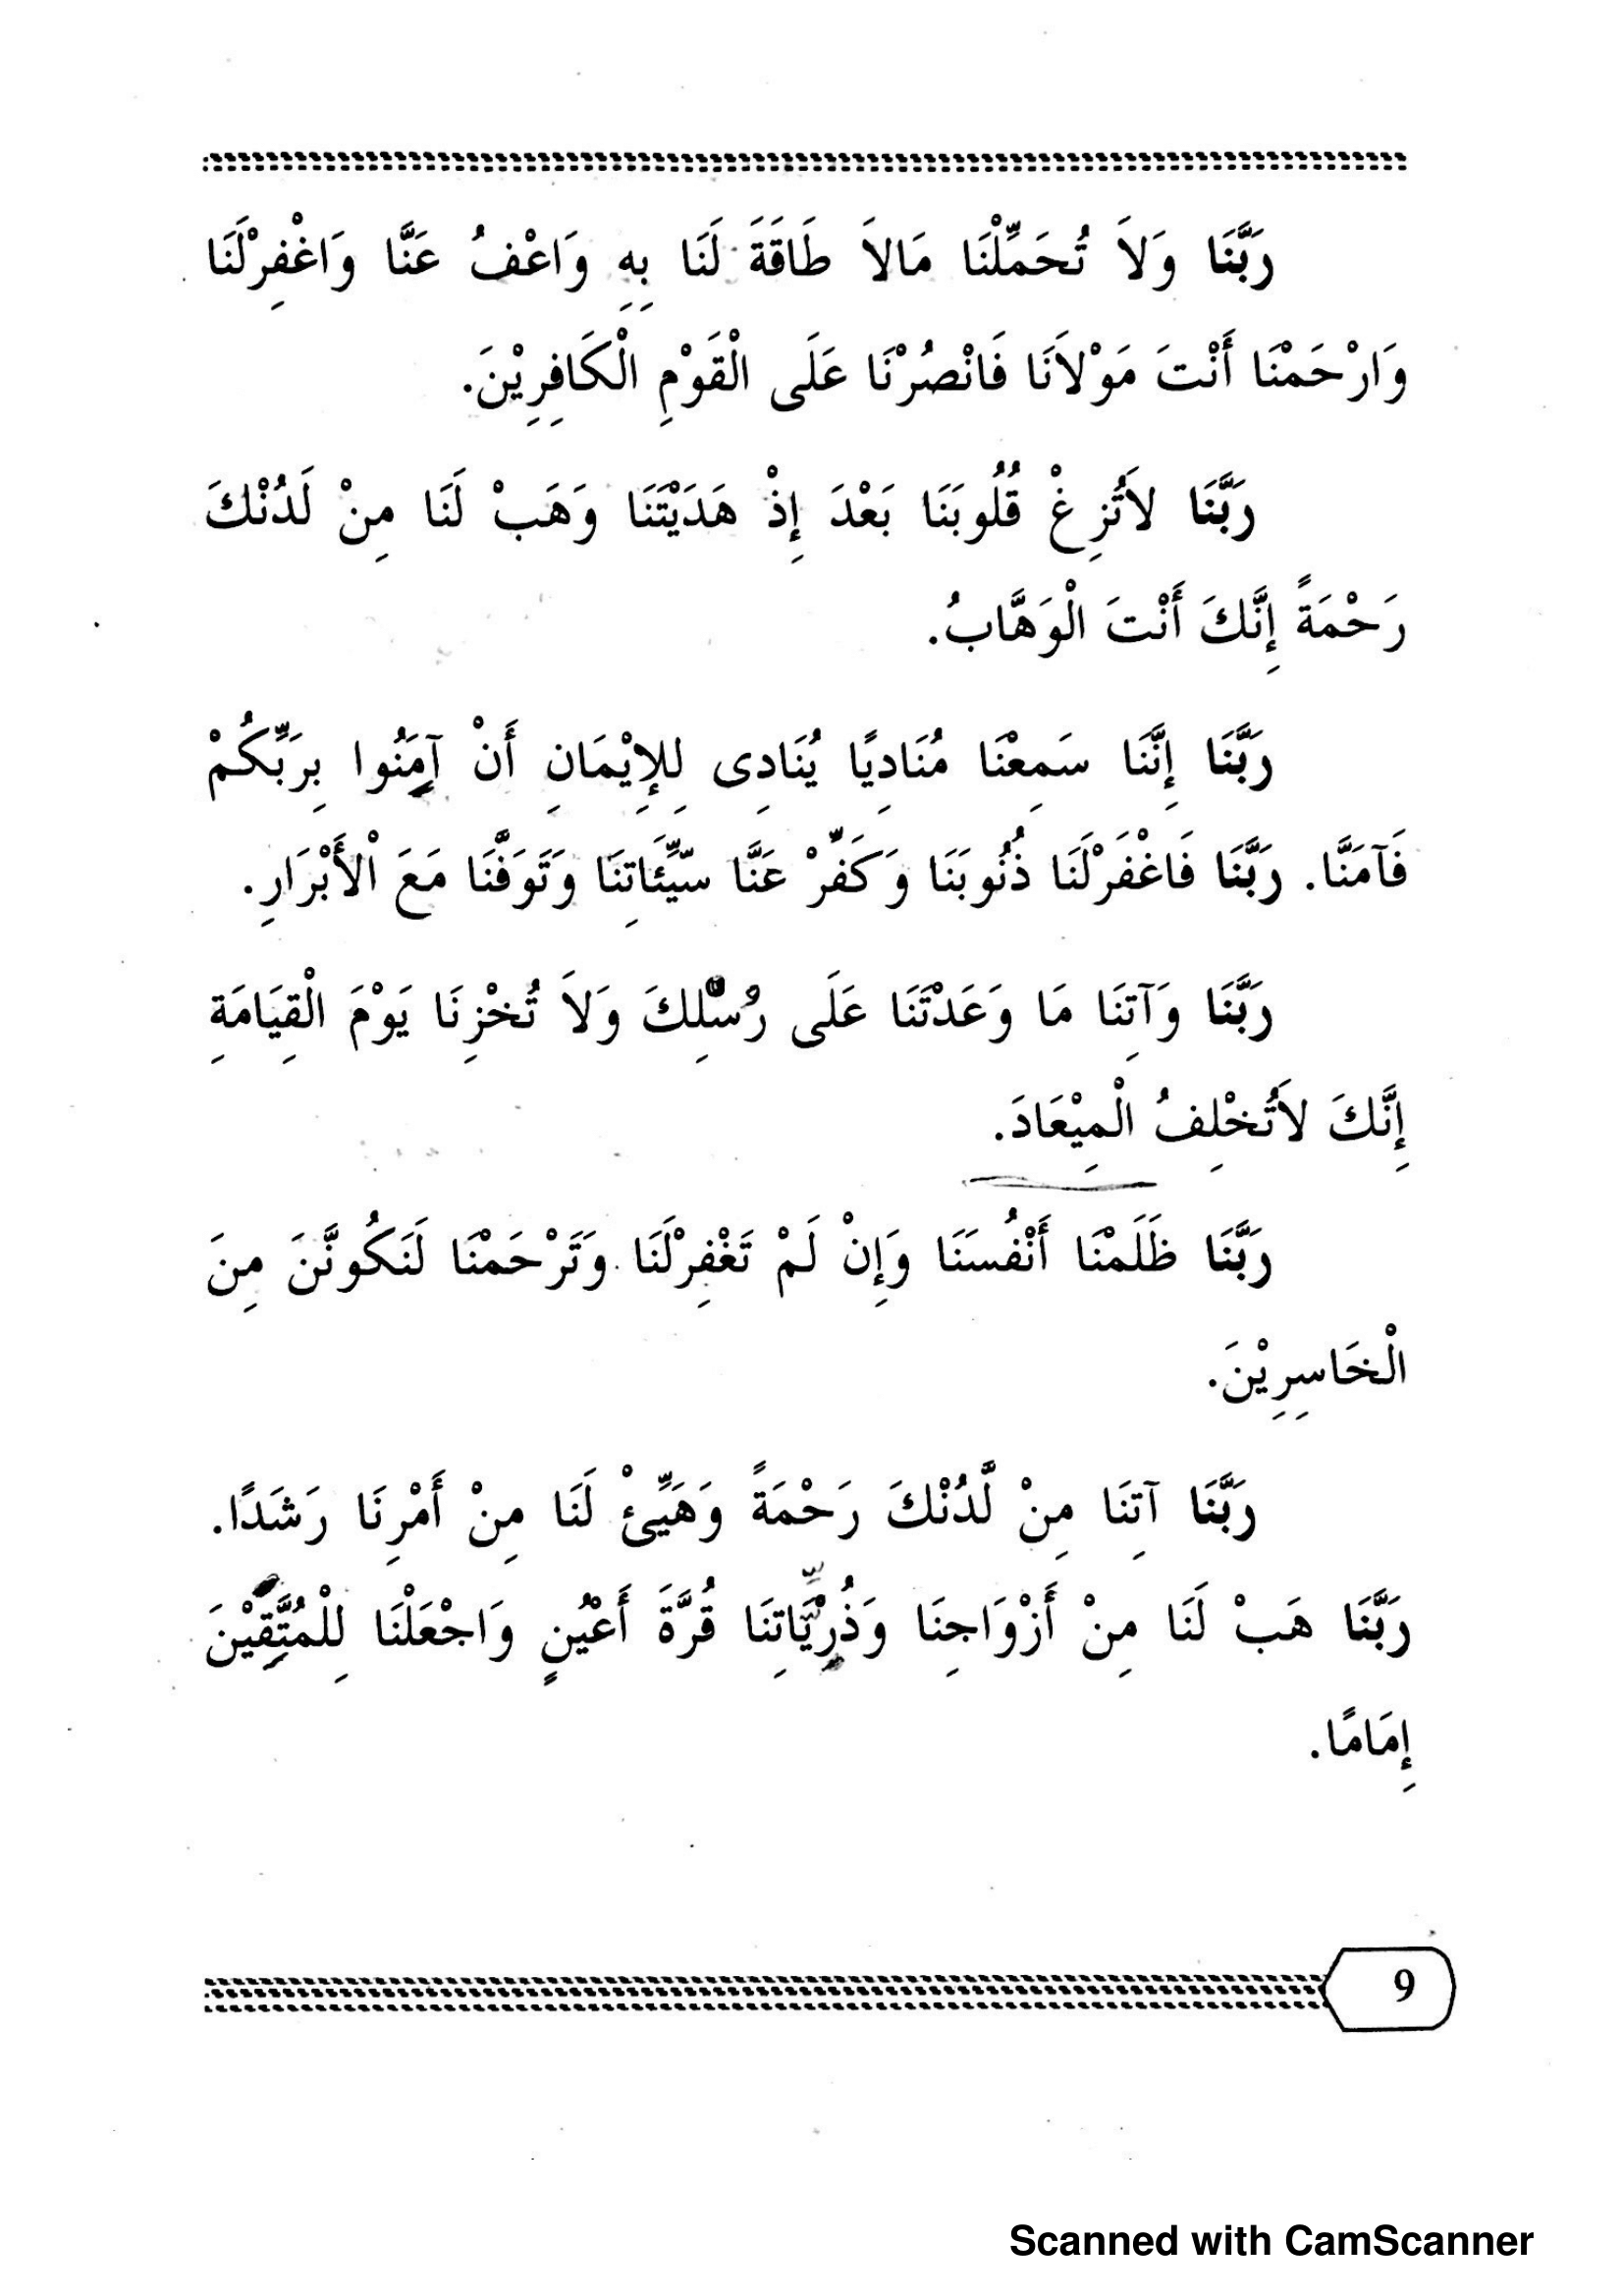 رَبَّنَا وَلاَ تُحَمِّلْنَا مَالاَ طَاقَةَ لَنَا بِهِ وَاعْفُ عَنَّا وَاغْفِرْلَنَا
وَارْحَمْنَا أَنْتَ مَوْلاَنَا فَانْصُرْنَا عَلَى الْقَوْمِ الْكَافِرِيْنَ.
رَبَّنَا لاَتُزِغْ قُلُوبَنَا بَعْدَ إِذْ هَدَيْتَنَا وَهَبْ لَنَا مِنْ لَدُنْكَ
رَحْمَةً إِنَّكَ أَنْتَ الْوَهَّابُ.
رَبَّنَا إِنَّنَا سَمِعْنَا مُنَادِيًا يُنَادِى لِلإِيْمَانِ أَنْ آمِنُوا بِرَبِّكُمْ
فَآمَنَّا. رَبَّنَا فَاغْفَرْلَنَا ذُنُوبَنَا وَكَفِّرْ عَنَّا سَيِّئَاتِنَا وَتَوَفَّنَا مَعَ الْأَبْرَارِ.
رَبَّنَا وَآتِنَا مَا وَعَدْتَنَا عَلَى رُسُلِكَ وَلاَ تُخْزِنَا يَوْمَ الْقِيَامَةِ
إِنَّكَ لاَتُخْلِفُ الْمِيْعَادَ.
رَبَّنَا ظَلَمْنَا أَنْفُسَنَا وَإِنْ لَمْ تَغْفِرْلَنَا وَتَرْحَمْنَا لَنَكُونَّنَ مِنَ
الْخَاسِرِيْنَ.
رَبَّنَا آتِنَا مِنْ لَّدُنْكَ رَحْمَةً وَهَيِّئْ لَنَا مِنْ أَمْرِنَا رَشَدًا.
رَبَّنَا هَبْ لَنَا مِنْ أَزْوَاجِنَا وَذُرِّيَّاتِنَا قُرَّةَ أَعْيُنٍ وَاجْعَلْنَا لِلْمُتَّقِيْنَ
إِمَامًا.
9
Scanned with CamScanner